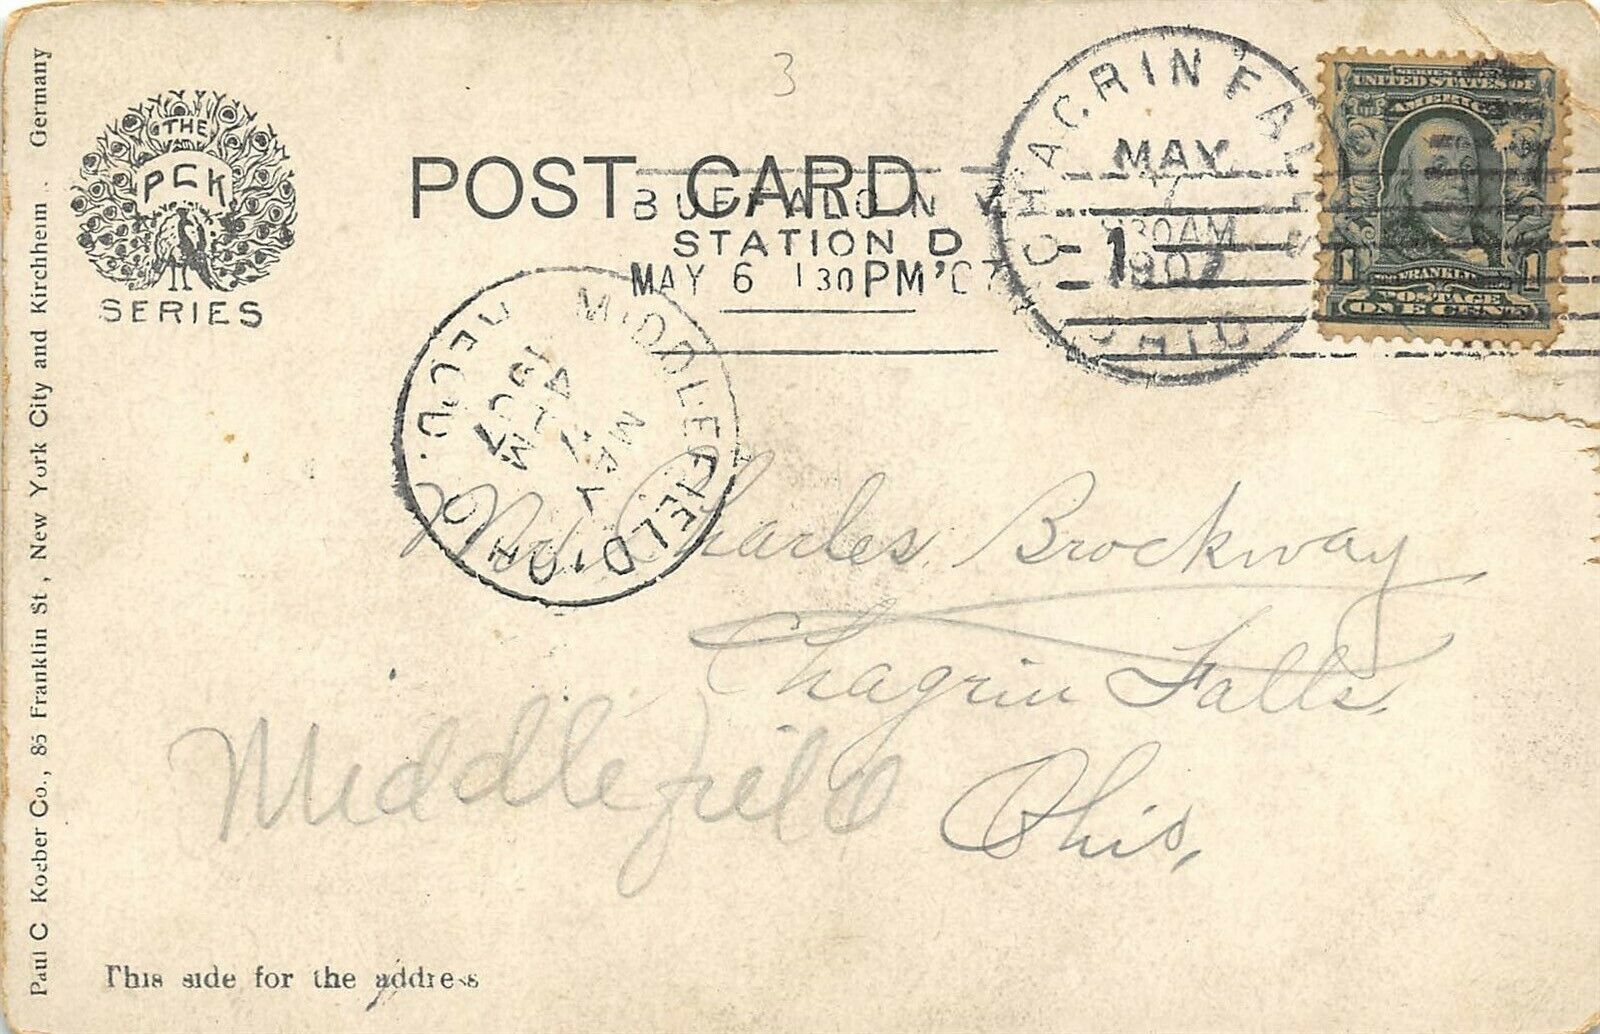 3
THE
PCK
SERIES
POST CARD
BUFFALO N Y
STATION D
MAY 6 1 30 PM '07
CHAGRIN FALLS
MAY
7
30AM
1907
OHIO
1
SERIES
UNITED STATES OF
AMERICA
FRANKLIN
1 1
POSTAGE
ONE CENT
MIDDLEFIELD, OHIO
REC'D.
MAY
7
1907
Mr Charles Brockway
Chagrin Falls,
Middlefield Ohio,
This side for the address
Paul C Koeber Co., 85 Franklin St, New York City and Kirchheim. Germany